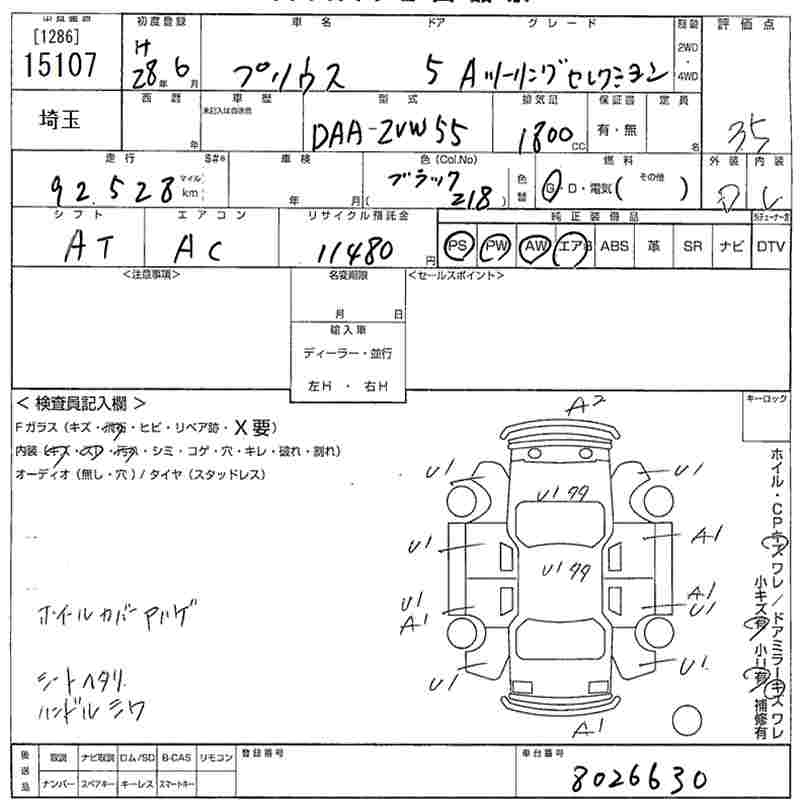 [1286]
15107
埼玉
初度登録
H
28年6月
車名
プリウス
ドア
5
グレード
Aツーリングセレクション
2WD
・
4WD
評価点
3.5
西暦
年
車歴
未記入は自家用
型式
DAA-ZVW55
排気記
1800
CC
保証書
有・無
定員
名
走行
92,528
マイル
km
S#*
車検
年 月
色(Col.No)
ブラック
( 218 )
色替
燃料
G・D・電気( その他 )
外装
D
内装
シフト
AT
エアコン
AC
リサイクル預託金
11480
円
純正装備品
PS PW AW エアB ABS 革 SR ナビ
DTV
<注意事項>
名変期限
月 日
輸入車
ディーラー・並行
左H ・ 右H
<セールスポイント>
< 検査員記入欄 >
Fガラス(キズ・飛石・ヒビ・リペア跡・X要)
内装(キズ・スレ・汚れ・シミ・コゲ・穴・キレ・破れ・割れ)
オーディオ(無し・穴)/タイヤ(スタッドレス)
ホイルカバーハゲ
シートヘタリ
ハンドルシワ
A2
U1
U1
U1
U1
A1
U1
U1
A1
A1
U1
U1
U1
A1
キーロック
ホイル・CPキズワレ/ドアミラーキズワレ
小キズ有 小U有 補修有
後送品
取説 ナビ取説 ロム/SD B-CAS リモコン
ナンバー スペアキー キーレス スマートキー
登録番号
車台番号
8026630